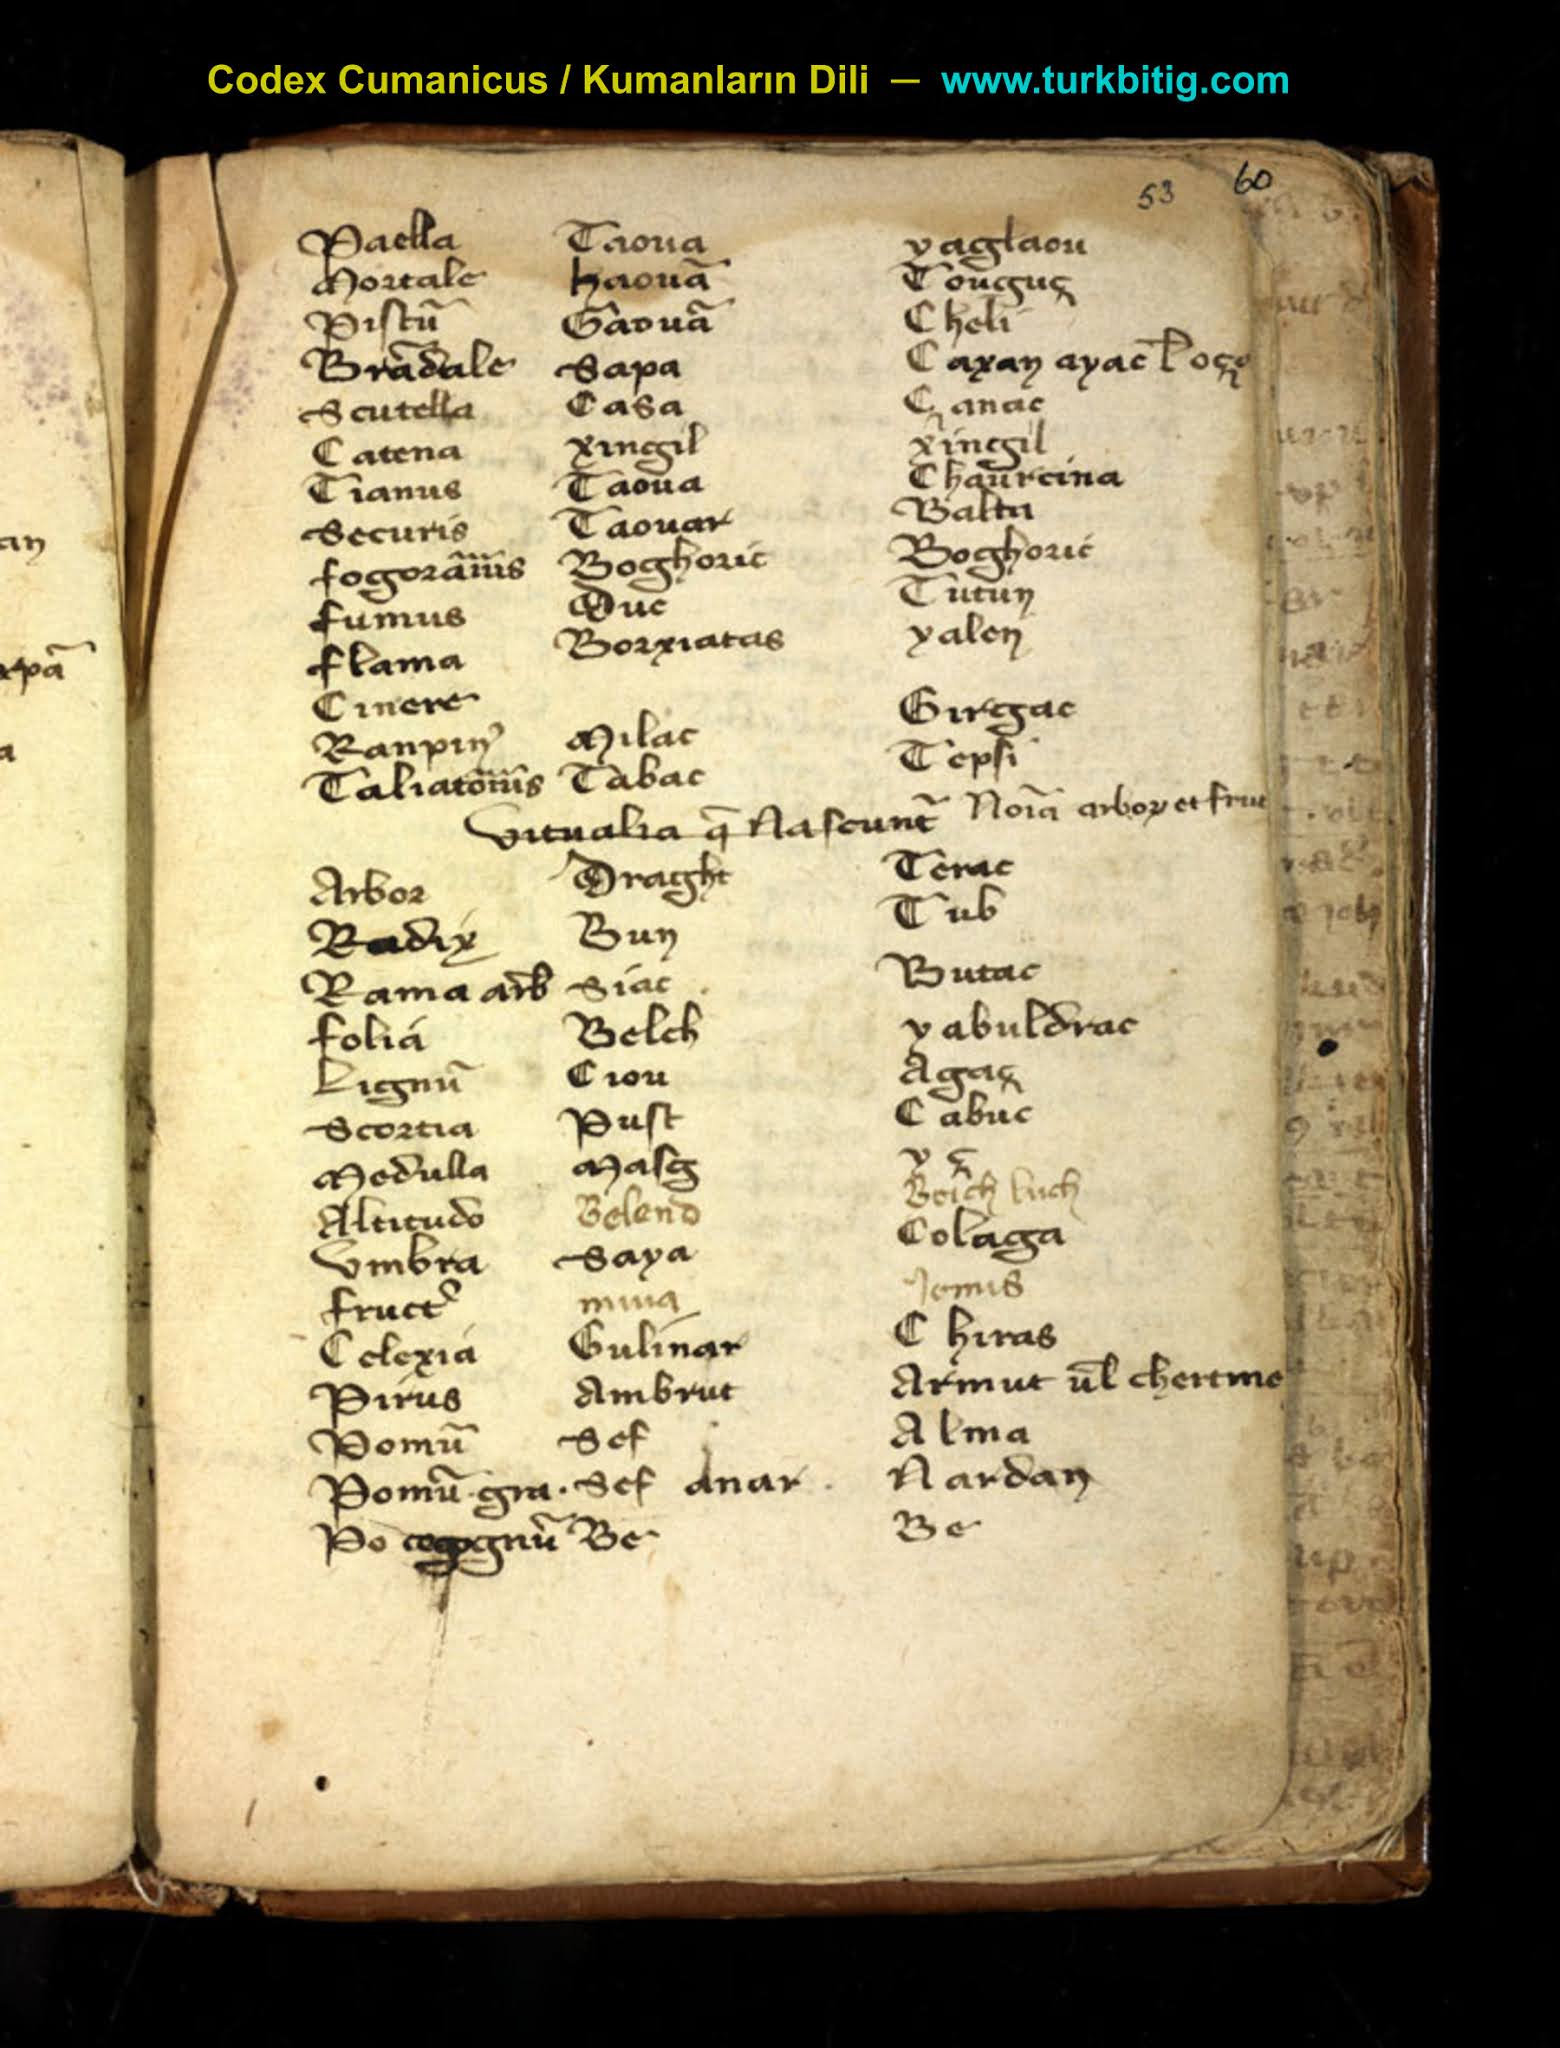 Codex Cumanicus / Kumanların Dili — www.turkbitig.com
53 60
Paella Taoua yaglaou
Mortale haouā Touguç
Pistū Gaouā Cheli
Brādale Sapa Caxan ayac l'
Scutella Casa Çanac
Catena xingil xingil
Tianus Taoua Chaurcina
Securis Taouar Balta
Boghoric Boghoric
fumus Duc Tutun
flama Borxiatas yalen
Cinere
Milac Girgac
Tabac Tepsi
Vitualia q̄ Nascunt̄ Noīa arbox et fruc
Arbor Draght Terac
Radix Bun Tub
Rama arb Siac Butac
folia Belch yabuldrac
Lignū Ciou Agaç
Scortia Pust Cabuc
Medulla Masg y ç
Altitudo Belend Beich luch
Vmbra Saya Colaga
fruct9 miua Jemis
Celexia Gulinar Chiras
Pirus Ambrut Armut ūl chertme
Pomū Sef Alma
Pomū gra. Sef anar Nardan
Po Be Be